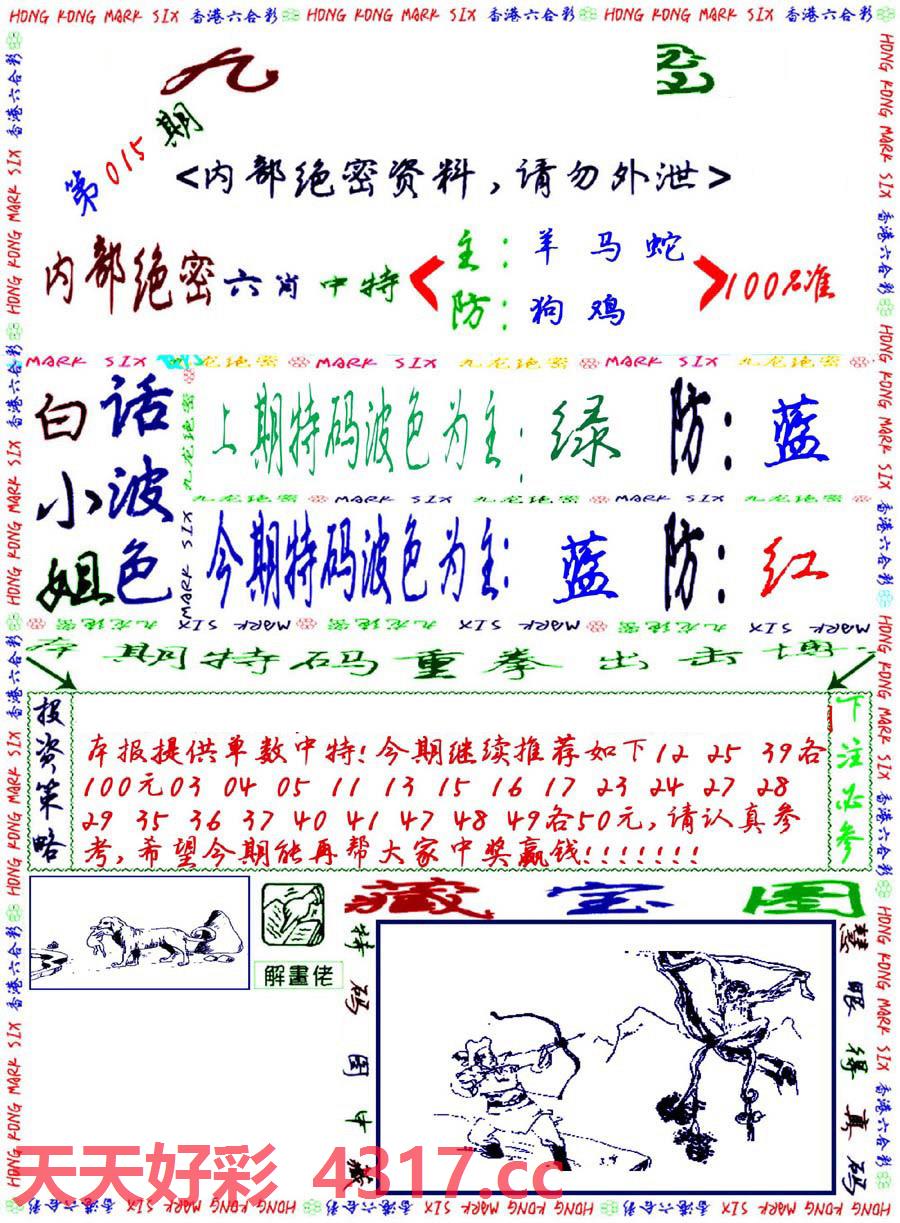 HONG KONG MARK SIX 香港六合彩 HONG KONG MARK SIX 香港六合彩 HONG KONG MARK SIX 香港六合彩
九
第015期
<内部绝密资料,请勿外泄>
内部绝密六肖中特
主:羊马蛇
防:狗鸡
100%准
MARK SIX 九龙绝密 MARK SIX 九龙绝密 MARK SIX 九龙绝密
白话
小波
姐色
上期特码波色为主:绿 防:蓝
九龙绝密 MARK SIX 九龙绝密 MARK SIX 九龙绝密
今期特码波色为主:蓝 防:红
期特码重拳出击
投资策略
本报提供单数中特!今期继续推荐如下12 25 39各
100元03 04 05 11 13 15 16 17 23 24 27 28
29 35 36 37 40 41 47 48 49各50元,请认真参
考,希望今期能再帮大家中奖赢钱!!!!!!!
下注必参
解畫佬
藏宝图
特码图中藏
慧眼得真码
天天好彩 4317.cc